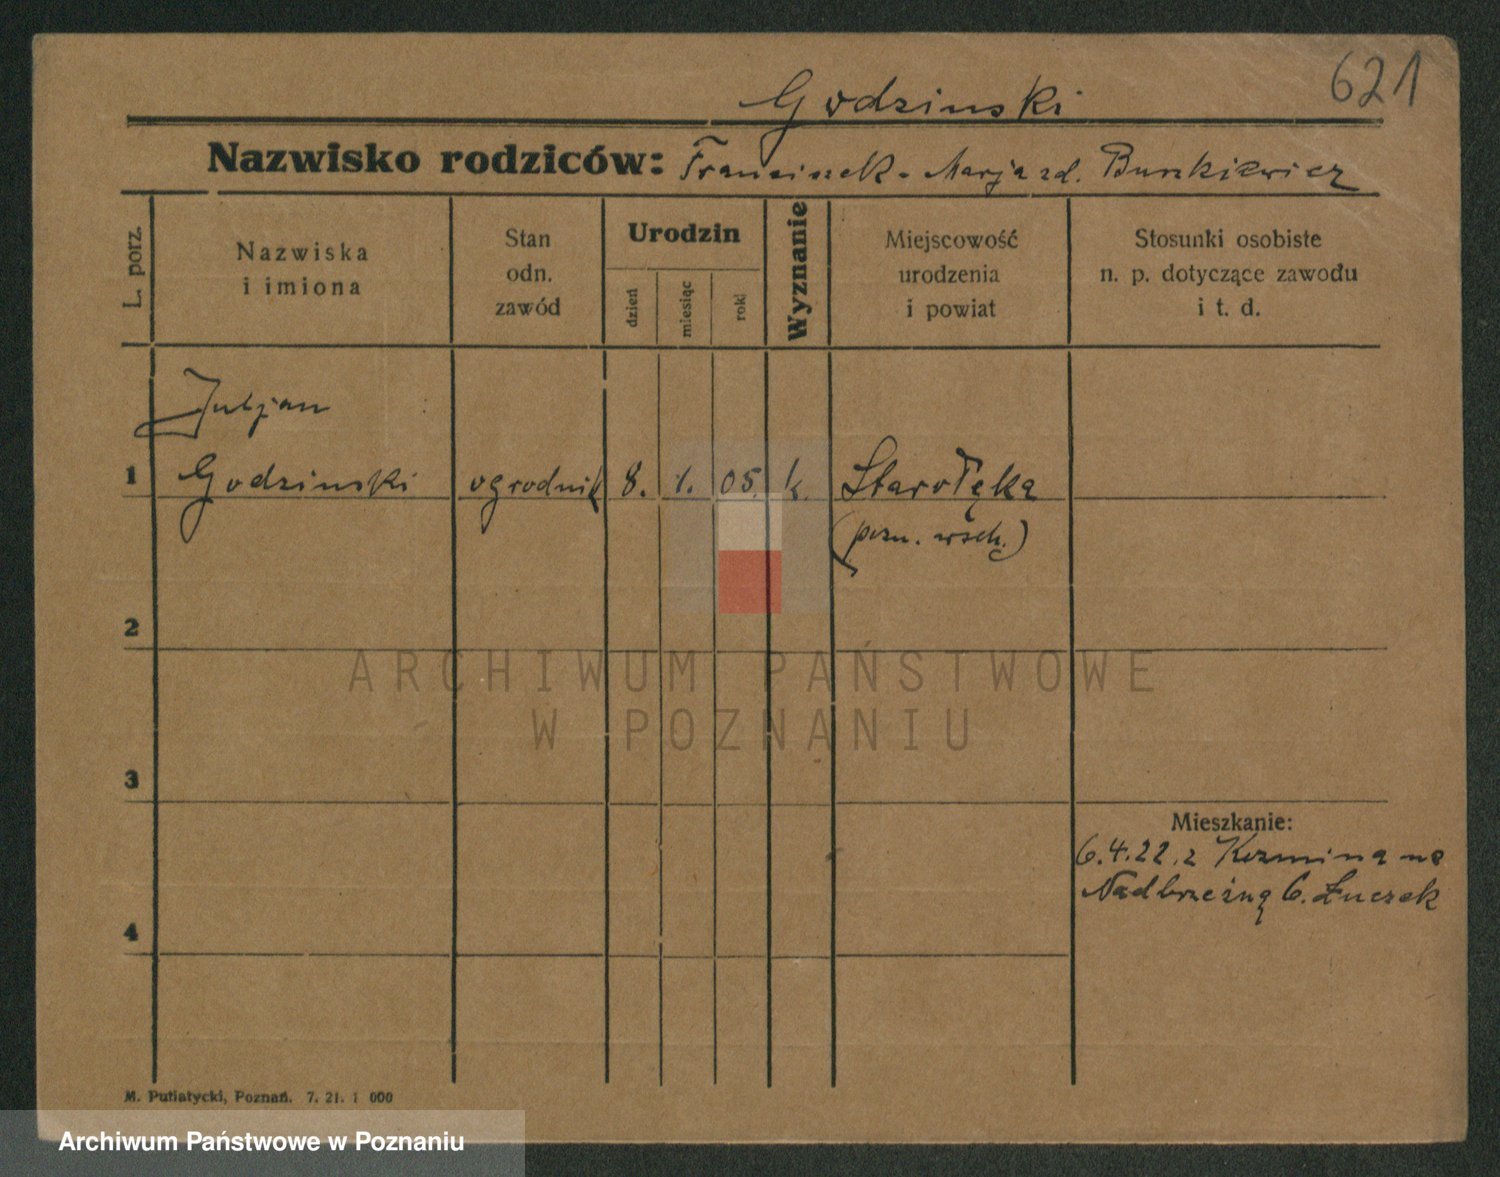 621
Godzinski
Nazwisko rodziców: Franciszek - Marja zd. Burzkiewicz
L. porz.
Nazwiska
i imiona
Stan
odn.
zawód
Urodzin
dzień
miesiąc
rok
Wyznanie
Miejscowość
urodzenia
i powiat
Stosunki osobiste
n. p. dotyczące zawodu
i t. d.
Juljan
1 Godzinski ogrodnik 8. 1. 05. k. Starołęka
(pozn. wsch.)
2
ARCHIWUM PAŃSTWOWE
W POZNANIU
3
Mieszkanie:
6.4.22. z Kozmina na
Nadbrzeżną 6. Łuczak
4
M. Putiatycki, Poznań. 7. 21. 1 000
Archiwum Państwowe w Poznaniu